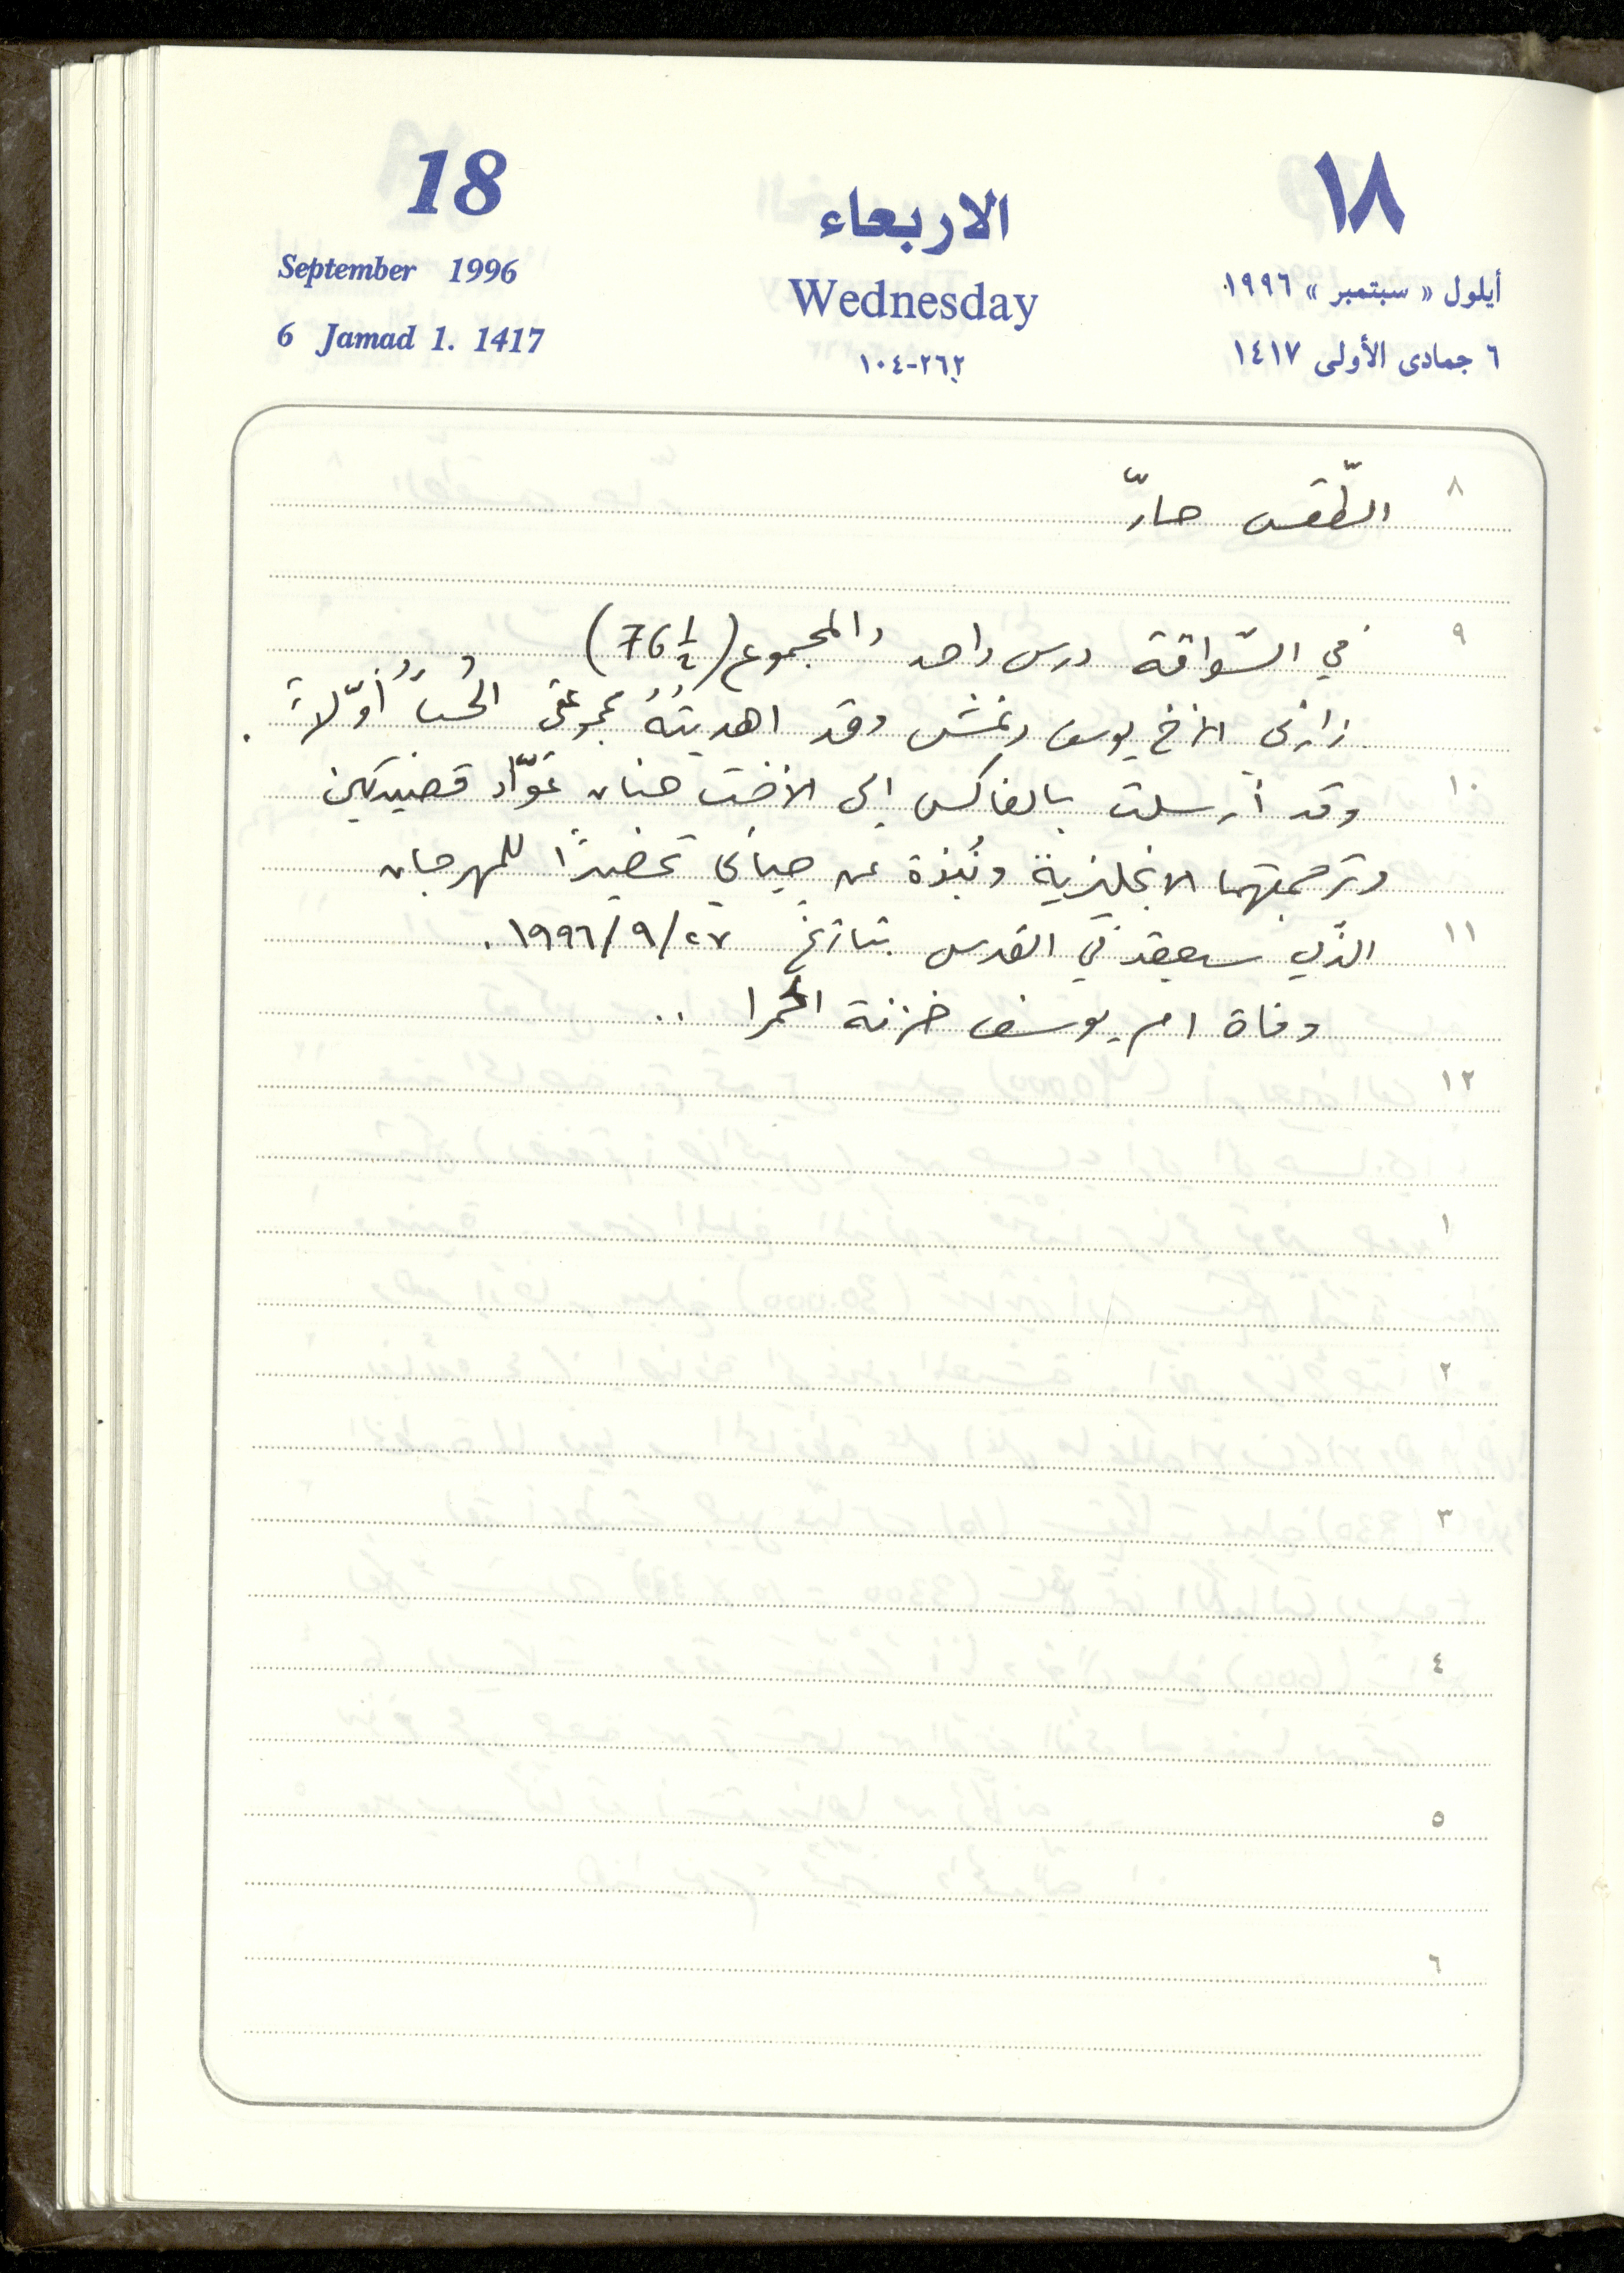 18
September 1996
6 Jamad 1. 1417
الاربعاء
Wednesday
٢٦٢-١٠٤
١٨
أيلول « سبتمبر » ١٩٩٦
٦ جمادى الأولى ١٤١٧
٨ الطّقس حارّ
٩ في السّواقة درس واحد والمجموع (76½)
زارني الأخ يوسف وقد اهديتُهُ مجموعتي الحُبُّ أوّلاً .
١٠ وقد أرسلت بالفاكس إلى الأخت حنان عوّاد قصيدتين
وترجمتهما الانجليزية ونُبذة عن حياتي تحضيرًا للمهرجان
١١ الذي سيعقد في القدس بتاريخ ١٩٩٦/٩/٢٧ .
وفاة ام يوسف خزنة الحمرا ..
١٢
١
٢
٣
٤
٥
٦